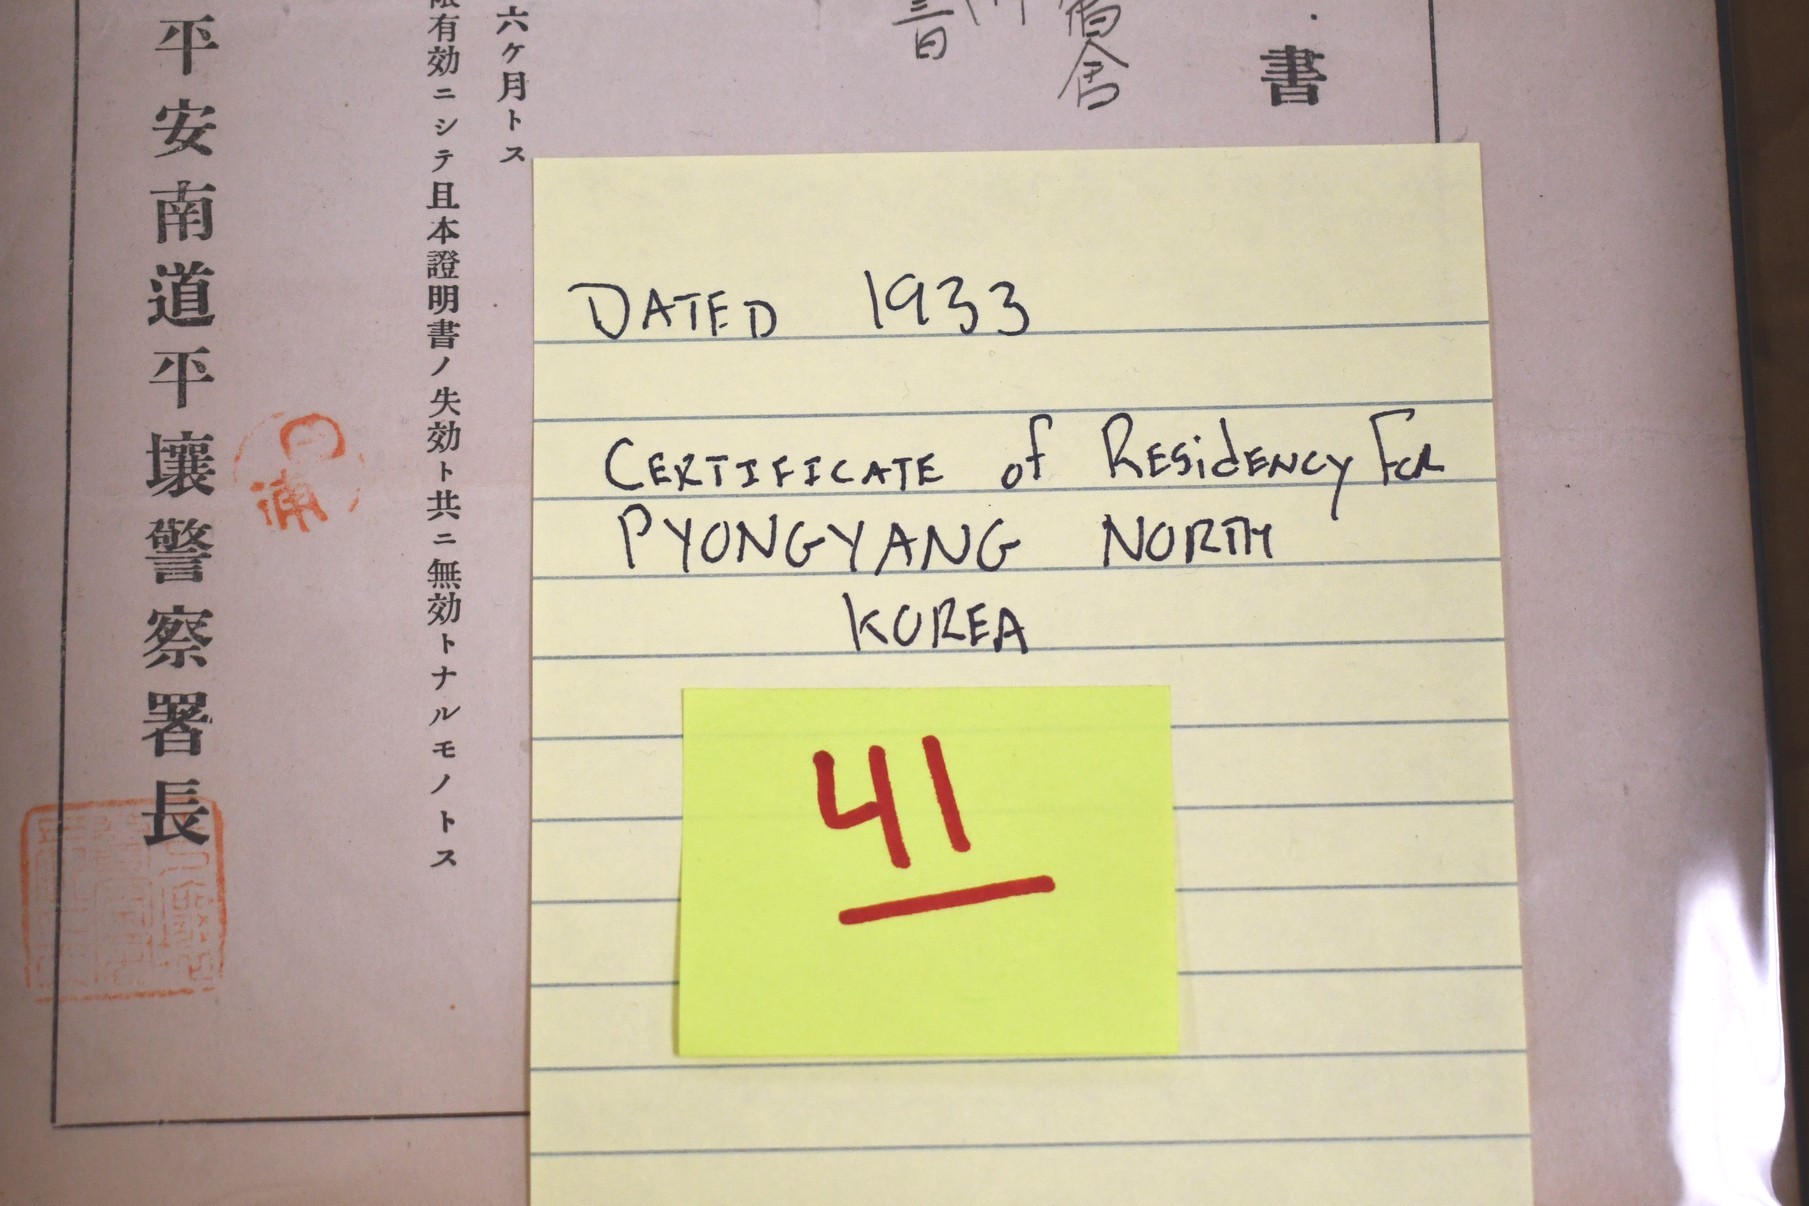 書
宿舎
六ケ月トス
限有効ニシテ且本證明書ノ失効ト共ニ無効トナルモノトス
平安南道平壤警察署長
DATED 1933
CERTIFICATE of RESidENCY FOR
PYONGYANG NORTH
KOREA
41